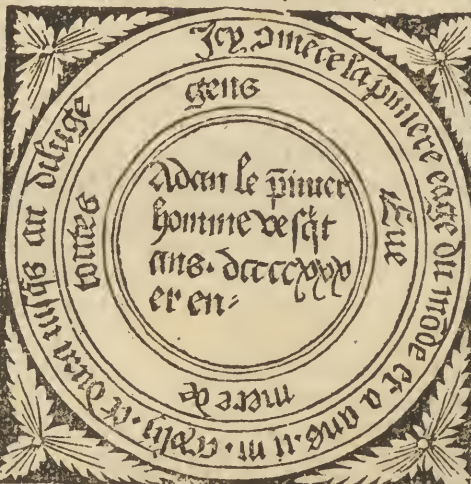 Jcy 9mēce la p̄miere eage du mōde et a ans .ii. m. et dura iusq̄s au deluge
Eue mere de toutes gens
Adan le p̄mier
homme vesq̄t
ans. dccccxxx
et en-